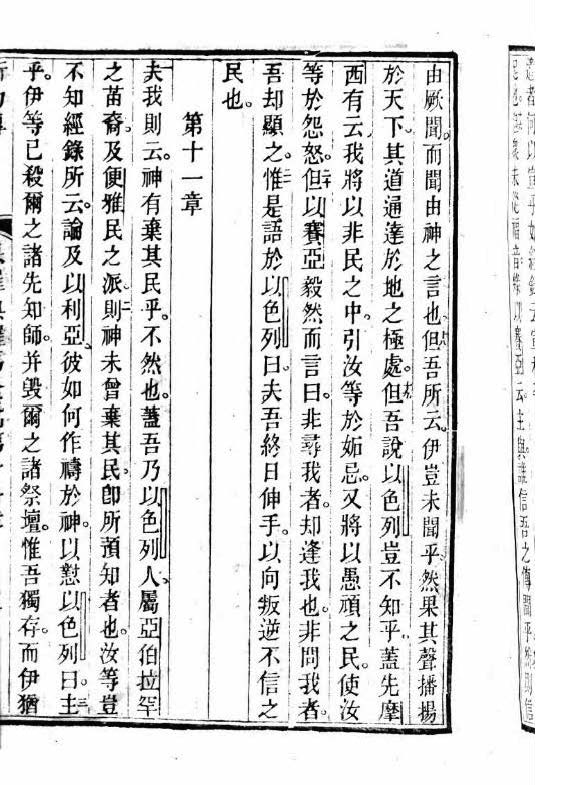 由厥聞。而聞由神之言也。但吾所云。伊豈未聞乎。然果其聲播揚
於天下。其道通達於地之極處。但吾說以色列豈不知乎。蓋先摩
西有云我將以非民之中。引汝等於妬忌。又將以愚頑之民使汝
等於怨怒。但以賽亞毅然而言曰。非尋我者。却逢我也。非問我者。
吾却顯之。惟是語於以色列曰。夫吾終日伸手。以向叛逆不信之
民也。
第十一章
夫我則云。神有棄其民乎。不然也。蓋吾乃以色列人。屬亞伯拉罕
之苗裔。及便雅民之派。則神未曾棄其民。卽所預知者也。汝等豈
不知經錄所云。論及以利亞。彼如何作禱於神。以懟以色列曰。主
乎。伊等已殺爾之諸先知師。并毀爾之諸祭壇。惟吾獨存。而伊猶